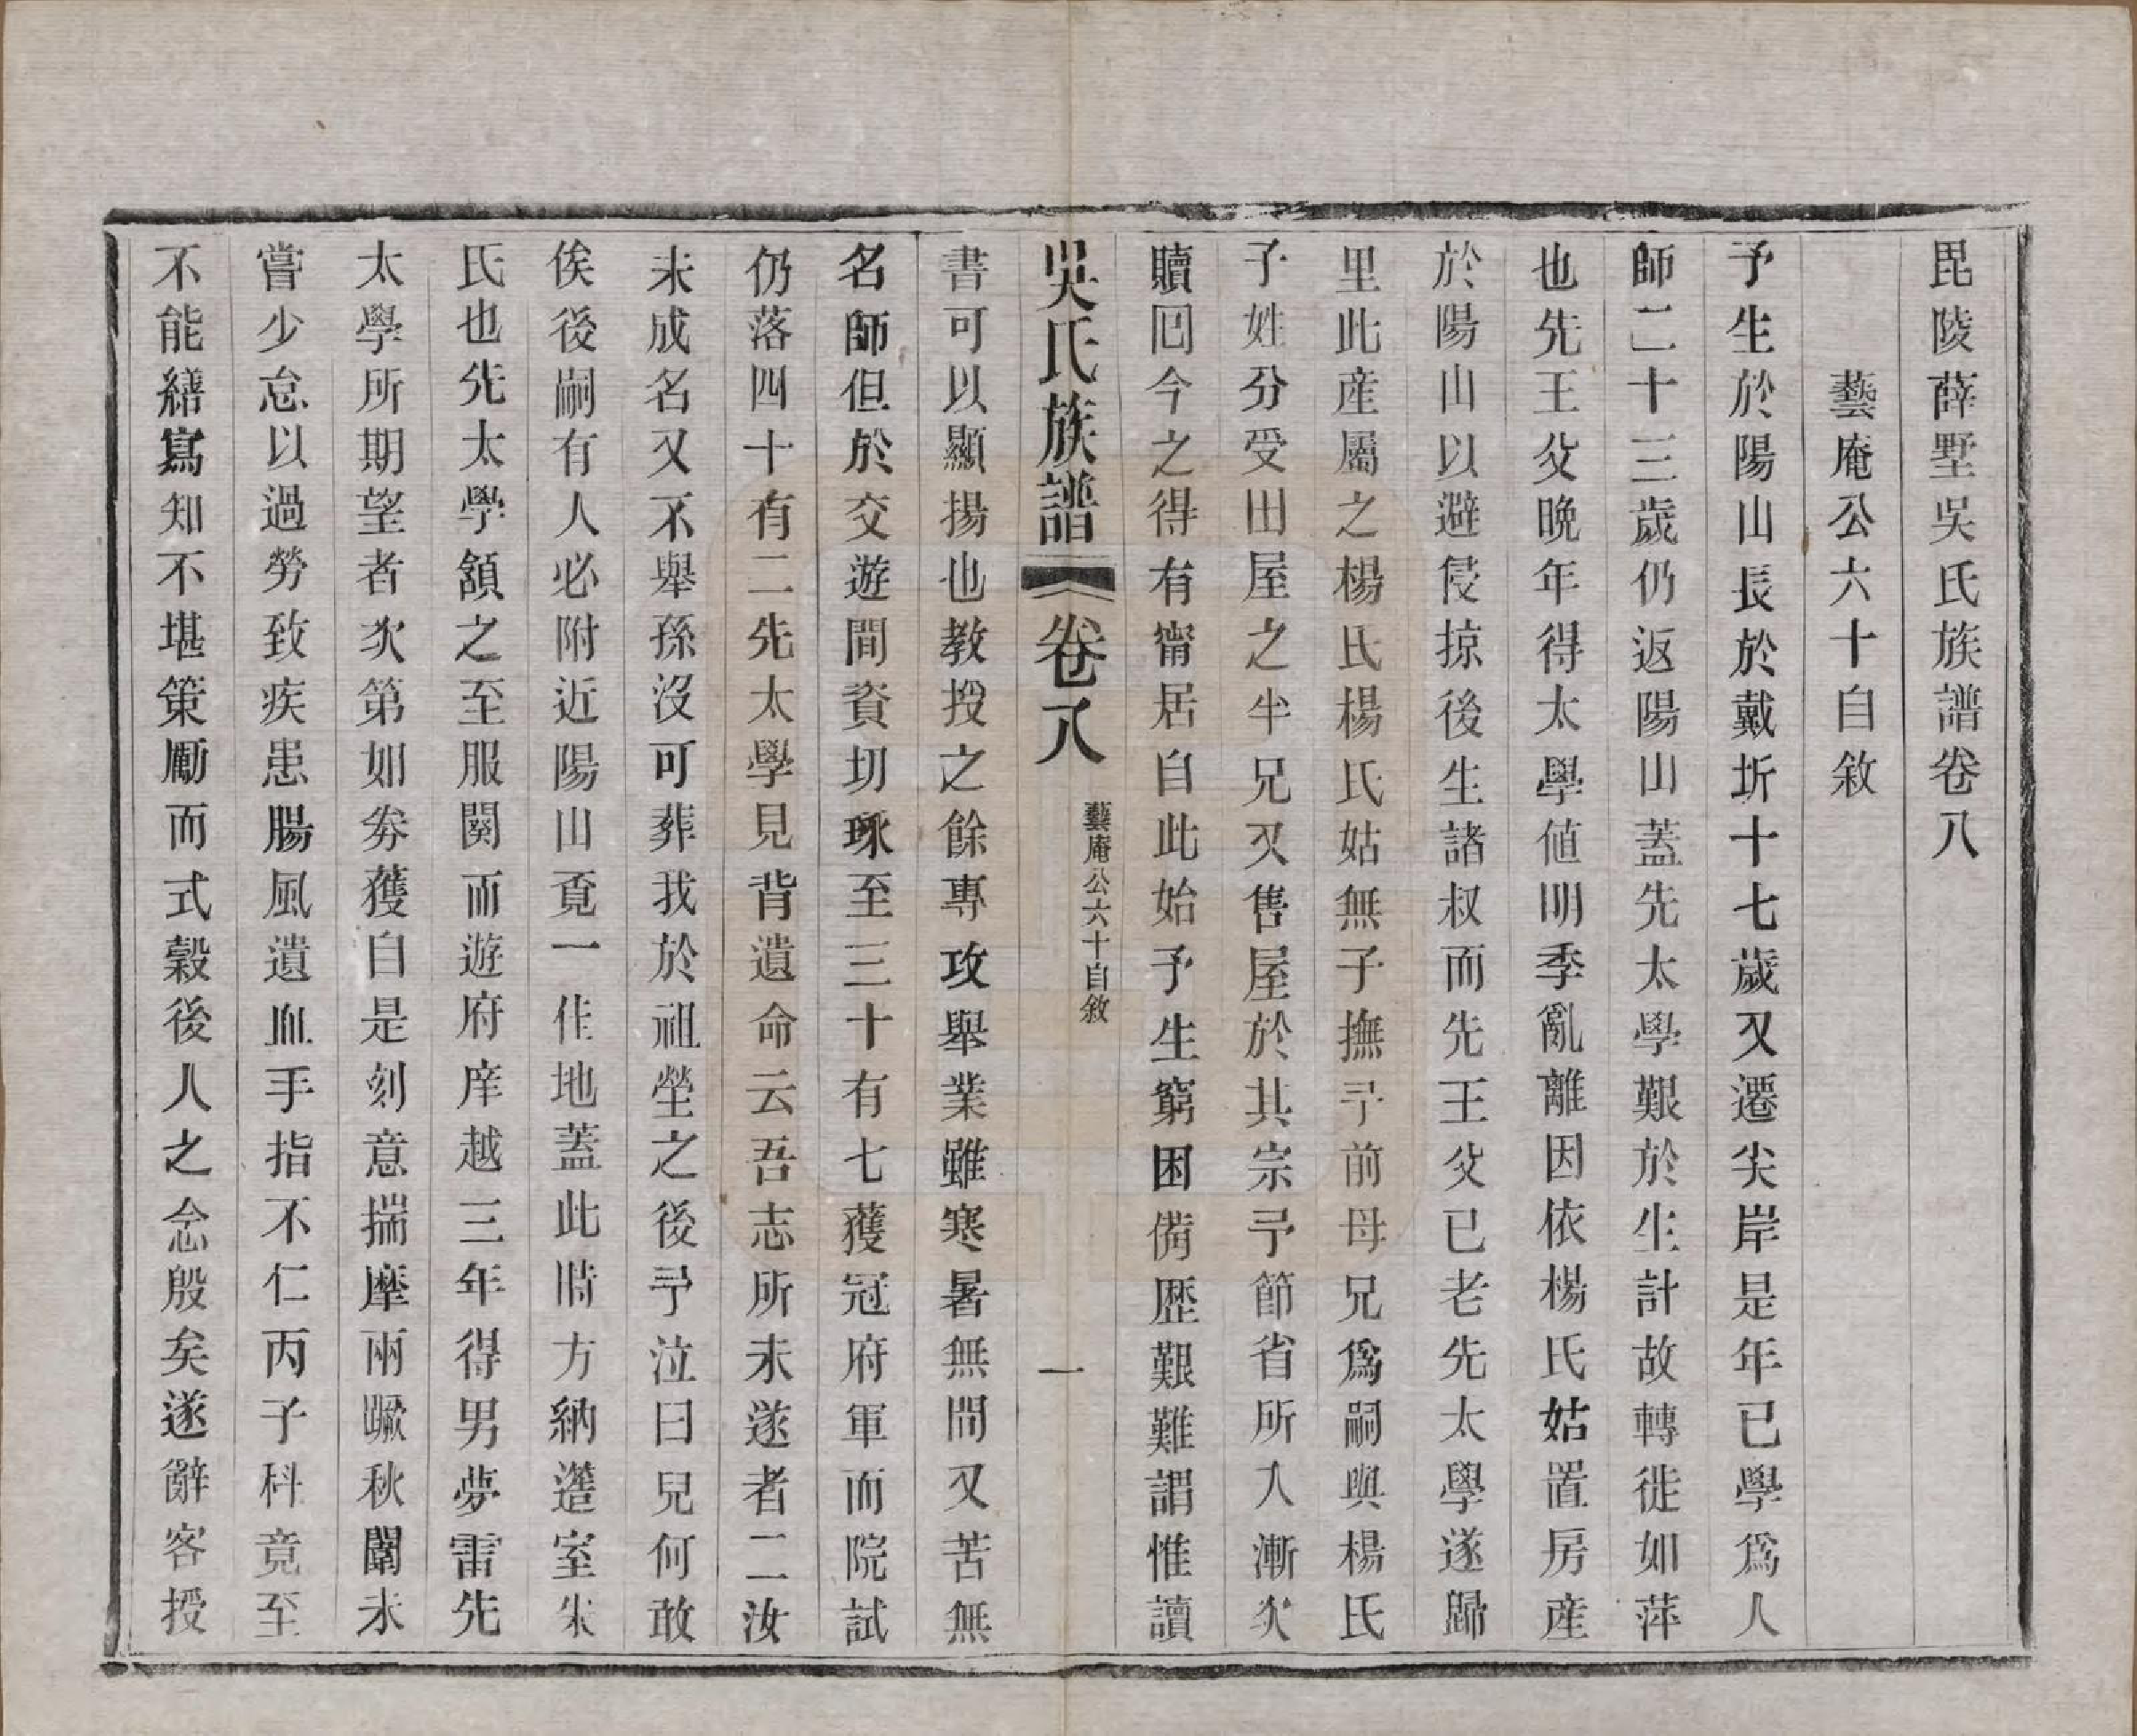 毘陵薛墅吳氏族譜卷八
藝庵公六十自敘
予生於陽山長於戴圻十七歲又遷尖岸是年已學爲人
師二十三歲仍返陽山蓋先太學艱於生計故轉徙如萍
也先王父晩年得太學値明季亂離因依楊氏姑置房産
於陽山以避侵掠後生諸叔而先王父已老先太學遂歸
里此産屬之楊氏楊氏姑無子撫予前母兄爲嗣與楊氏
子姓分受田屋之半兄又售屋於其宗予節省所入漸次
贖回今之得有甯居自此始予生窮困備歷艱難謂惟讀
吳氏族譜 卷八 藝庵公六十自敘 一
書可以顯揚也教授之餘專攻舉業雖寒暑無間又苦無
名師但於交遊間資切琢至三十有七獲冠府軍而院試
仍落四十有二先太學見背遺命云吾志所未遂者二汝
未成名又不舉孫沒可葬我於祖塋之後予泣曰兒何敢
俟後嗣有人必附近陽山覓一佳地蓋此時方納簉室朱
氏也先太學頷之至服闋而遊府庠越三年得男夢雷先
太學所期望者次第如劵獲自是刻意揣摩兩蹶秋闈未
嘗少怠以過勞致疾患腸風遺血手指不仁丙子科竟至
不能繕寫知不堪策勵而式穀後人之念殷矣遂辭客授